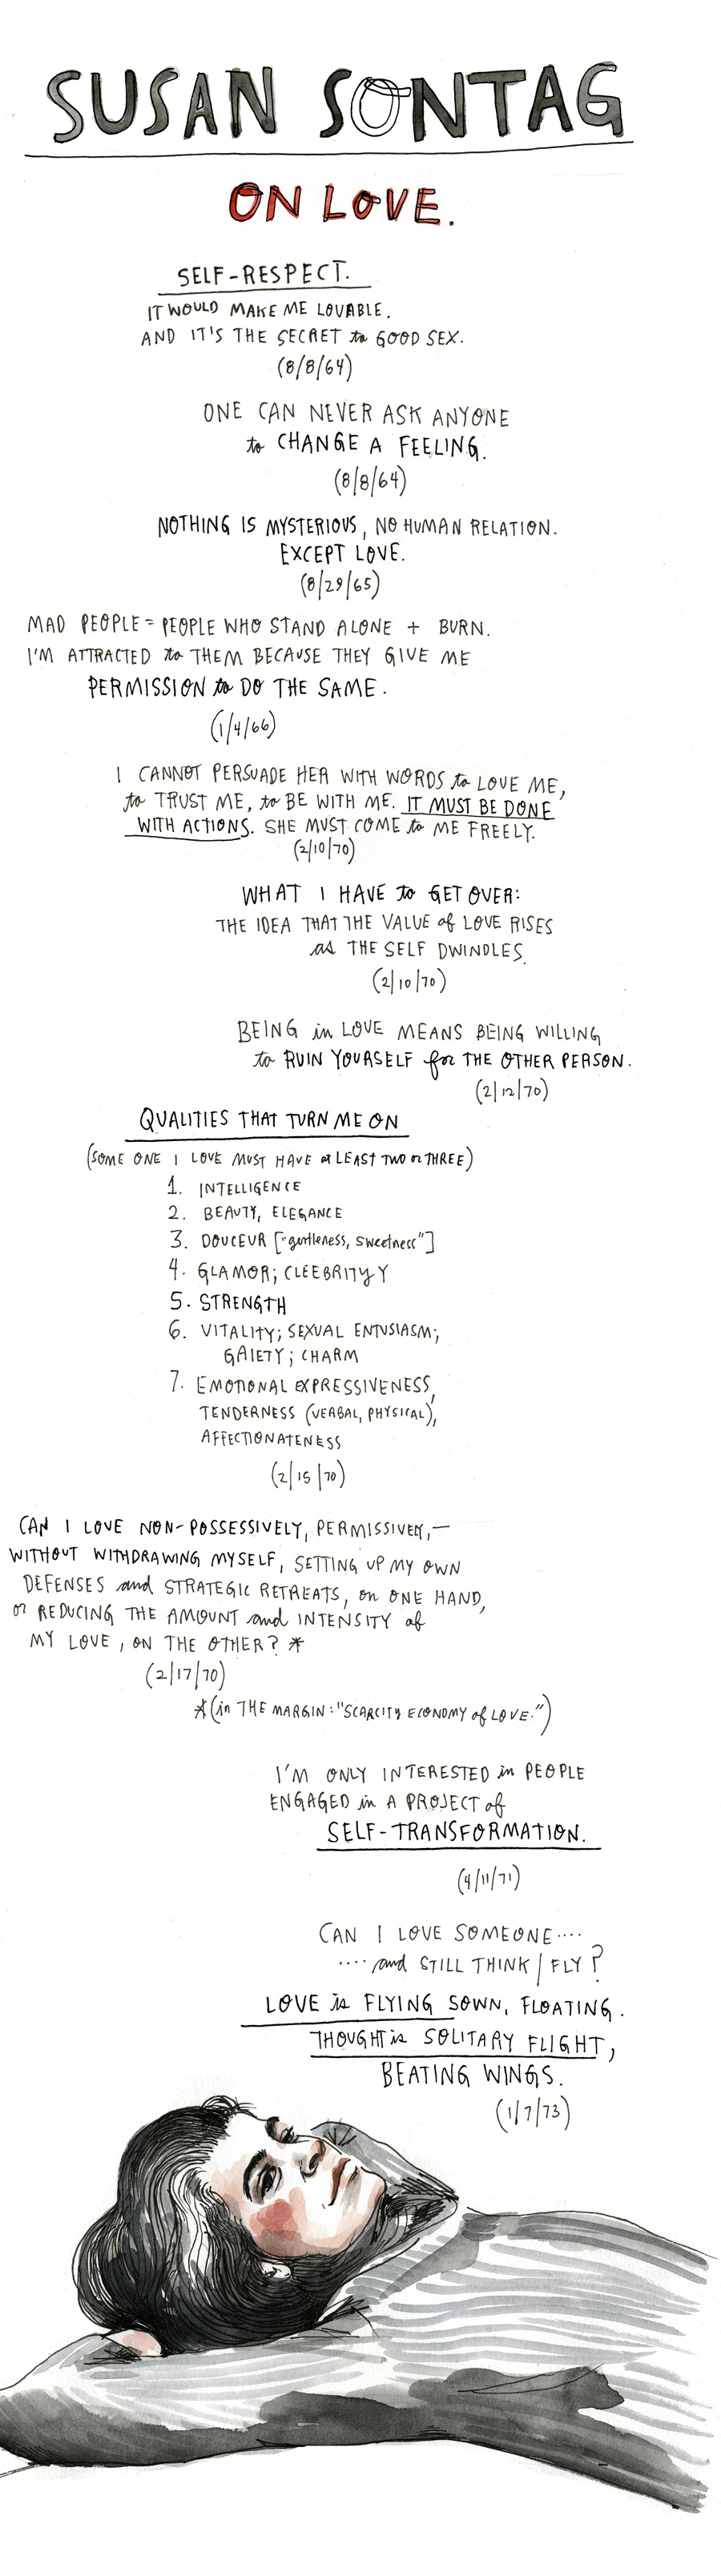 SUSAN SONTAG
ON LOVE.
SELF-RESPECT.
IT WOULD MAKE ME LOVABLE.
AND IT'S THE SECRET to GOOD SEX.
(8/8/64)
ONE CAN NEVER ASK ANYONE
to CHANGE A FEELING.
(8/8/64)
NOTHING IS MYSTERIOUS, NO HUMAN RELATION.
EXCEPT LOVE.
(8/29/65)
MAD PEOPLE = PEOPLE WHO STAND ALONE + BURN.
I'M ATTRACTED to THEM BECAUSE THEY GIVE ME
PERMISSION to DO THE SAME.
(1/4/66)
I CANNOT PERSUADE HER WITH WORDS to LOVE ME,
to TRUST ME, to BE WITH ME. IT MUST BE DONE
WITH ACTIONS. SHE MUST COME to ME FREELY.
(2/10/70)
WHAT I HAVE to GET OVER:
THE IDEA THAT THE VALUE of LOVE RISES
as THE SELF DWINDLES.
(2/10/70)
BEING in LOVE MEANS BEING WILLING
to RUIN YOURSELF for THE OTHER PERSON.
(2/12/70)
QUALITIES THAT TURN ME ON
(SOME ONE I LOVE MUST HAVE at LEAST TWO or THREE)
1. INTELLIGENCE
2. BEAUTY, ELEGANCE
3. DOUCEUR ["gentleness, sweetness"]
4. GLAMOR; CLEEBRITYY
5. STRENGTH
6. VITALITY; SEXUAL ENTUSIASM;
GAIETY; CHARM
7. EMOTIONAL EXPRESSIVENESS,
TENDERNESS (VERBAL, PHYSICAL),
AFFECTIONATENESS
(2/15/70)
CAN I LOVE NON-POSSESSIVELY, PERMISSIVELY,—
WITHOUT WITHDRAWING MYSELF, SETTING UP MY OWN
DEFENSES and STRATEGIC RETREATS, on ONE HAND,
or REDUCING THE AMOUNT and INTENSITY of
MY LOVE, ON THE OTHER? *
(2/17/70)
*(in THE MARGIN: "SCARCITY ECONOMY of LOVE.")
I'M ONLY INTERESTED in PEOPLE
ENGAGED in A PROJECT of
SELF-TRANSFORMATION.
(4/11/71)
CAN I LOVE SOMEONE....
.... and STILL THINK / FLY?
LOVE is FLYING SOWN, FLOATING.
THOUGHT is SOLITARY FLIGHT,
BEATING WINGS.
(1/7/73)